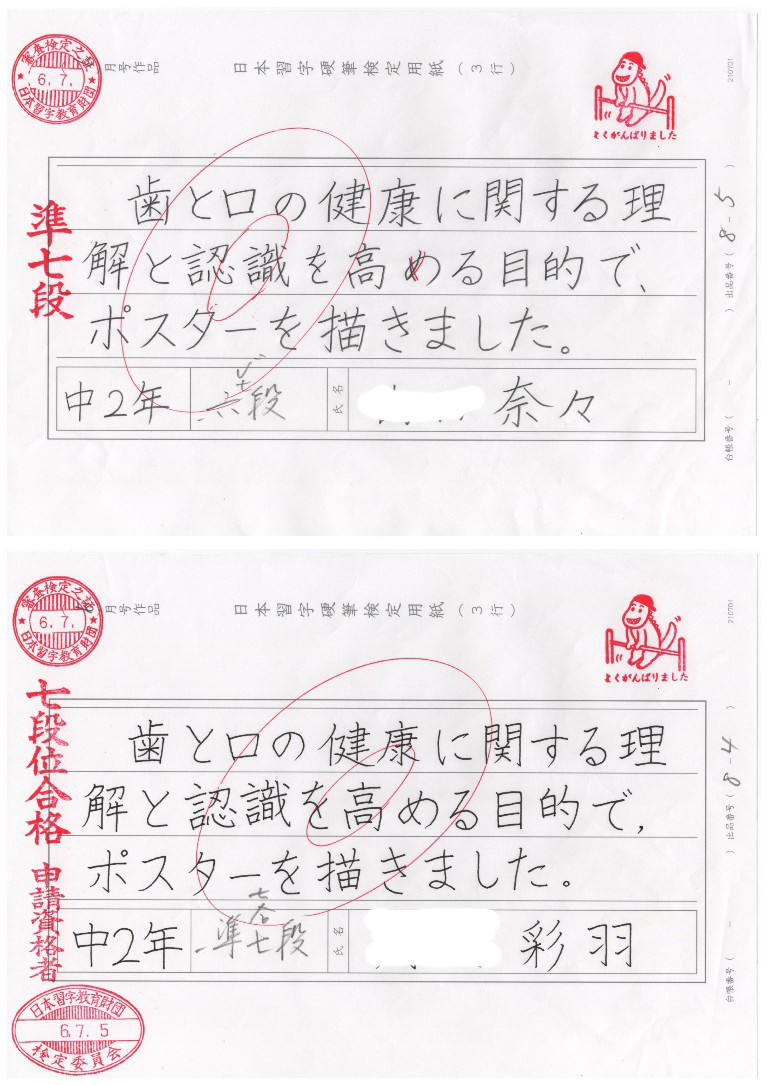 審査検定之証
6.7.
日本習字教育財団
月号作品
日本習字硬筆検定用紙(3行)
よくがんばりました
210701
準七段
歯と口の健康に関する理
解と認識を高める目的で、
ポスターを描きました。
中2年
六段
氏名
奈々
出品番号(8-5)
台帳番号( - )
審査検定之証
6.7.
日本習字教育財団
月号作品
日本習字硬筆検定用紙(3行)
よくがんばりました
210701
七段位合格 申請資格者
歯と口の健康に関する理
解と認識を高める目的で,
ポスターを描きました。
中2年
準七段
氏名
彩羽
出品番号(8-4)
台帳番号( - )
日本習字教育財団
6.7.5
検定委員会